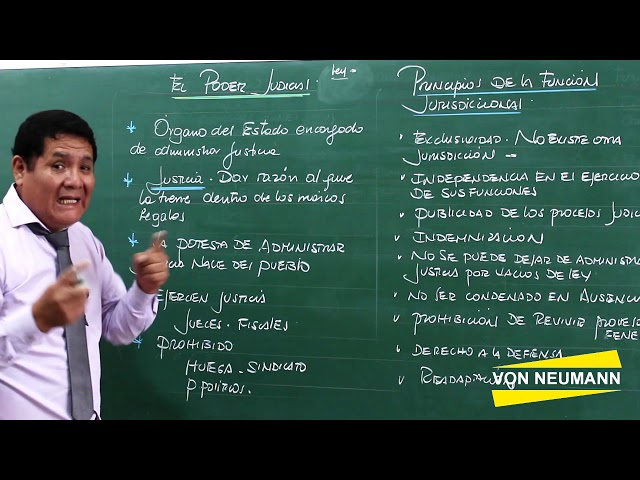 EL PODER JUDICIAL.
ley
* Órgano del Estado encargado
de administrar Justicia
* Justicia. Dar razón al que
la tiene dentro de los marcos
legales
* LA POTESTA DE ADMINISTRAR
NACE DEL PUEBLO
EJERCEN JUSTICIA
JUECES. FISCALES
* PROHIBIDO
HUEGA - SINDICATO
P POLÍTICOS.
PRINCIPIOS DE LA FUNCION
JURISDICCIONAL.
EXCLUSIVIDAD. NO EXISTE OTRA
JURISDICCIÓN
INDEPENDENCIA EN EL EJERCICIO
DE SUS FUNCIONES
PUBLICIDAD DE LOS PROCESOS JUDICI
INDEMNIZACION
NO SE PUEDE DEJAR DE ADMINISTRA
JUSTICIA POR VACIOS DE LEY
NO SER CONDENADO EN AUSENCI
PROHIBICIÓN DE REVIVIR PROCESO
FENE
DERECHO A LA DEFENSA
READAPTACIÓN
VON NEUMANN